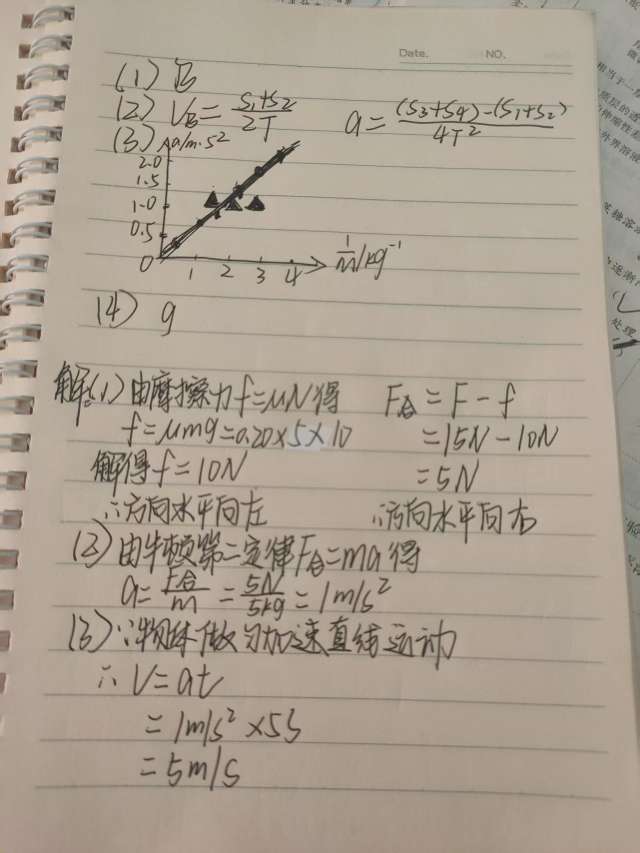 Date. NO.
(1) B
(2) V_B = (S₁+S₂)/2T a = ((S₃+S₄)-(S₁+S₂))/4T²
(3) a/m·s²
2.0
1.5
1.0
0.5
0 1 2 3 4 1/m/kg⁻¹
(4) g
解:(1) 由摩擦力f=μN得 F合=F-f
f=μmg=0.20×5×10 =15N-10N
解得f=10N =5N
∴方向水平向左 ∴方向水平向右
(2) 由牛顿第二定律F合=ma得
a=F合/m=5N/5kg=1m/s²
(3) ∵物体做匀加速直线运动
∴V=at
=1m/s²×5s
=5m/s